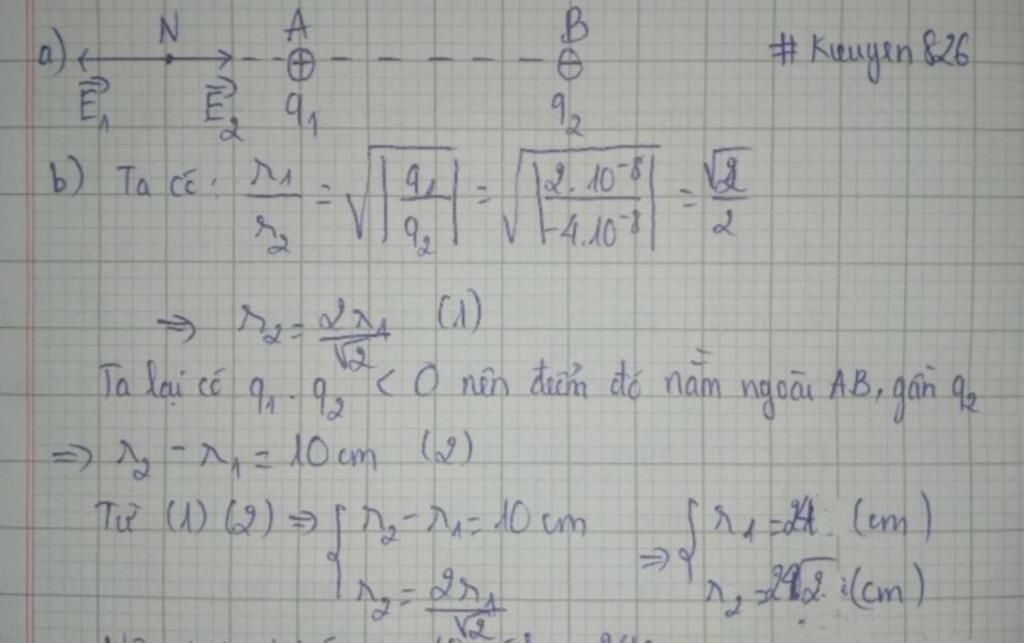 a) N A B # Kuuyen 826
E₁ E₂ q₁ q₂
b) Ta có: r₁/r₂ = √|q₁/q₂| = √|2.10⁻⁸/-4.10⁻⁸| = √2/2
⇒ r₂ = 2r₁/√2 (1)
Ta lại có q₁.q₂ < 0 nên điểm đó nằm ngoài AB, gần q₂
⇒ r₂ - r₁ = 10 cm (2)
Từ (1) (2) ⇒ { r₂ - r₁ = 10 cm ⇒ { r₁ = 24 (cm)
r₂ = 2r₁/√2 r₂ = 24√2 (cm)